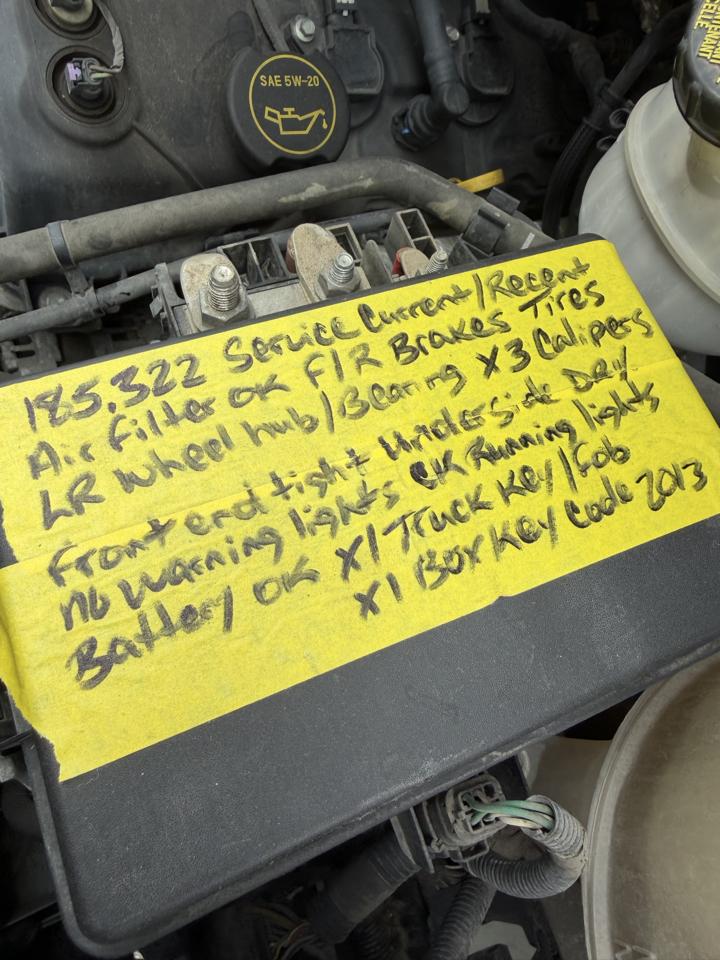 SAE 5W-20
185,322 Service Current/Recent
Air Filter OK F/R Brakes Tires
LR wheel hub/Bearing x3 Calipers
Front end tight Underside Dry
No warning lights OK Running lights
Battery OK x1 Truck Key/Fob
x1 Box Key Code 2013